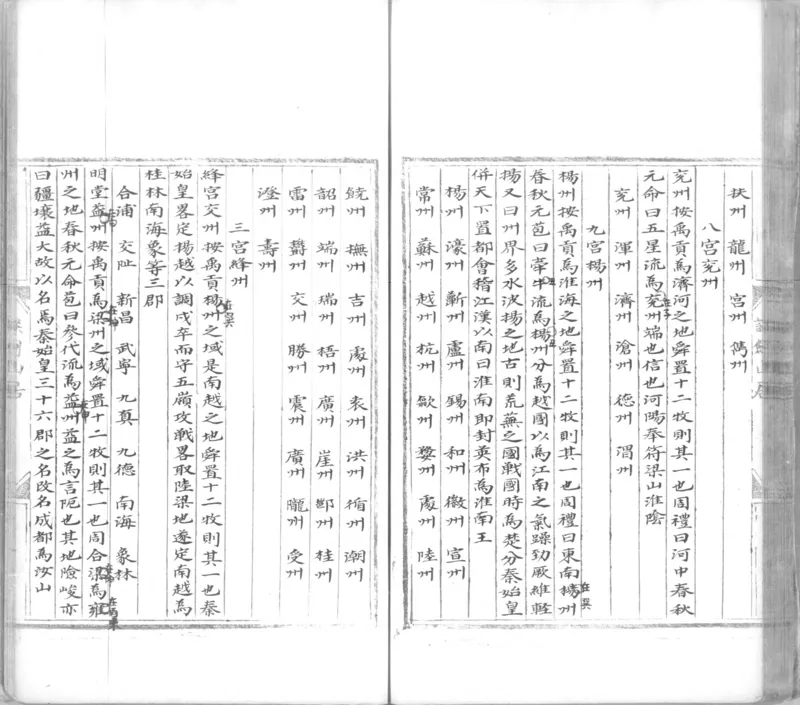 扶州 龍州 宮州 儁州
八宮兖州
兖州按禹貢為濟河之地舜置十二牧則其一也周禮曰河中春秋
元命曰五星流為兖州端也信也河陽奉符梁山淮陰
兖州 渾州 濟州 滄州 德州 渭州
九宮楊州
楊州按禹貢為淮海之地舜置十二牧則其一也周禮曰東南楊州
春秋元苞曰牽牛流為楊州分為越國以為江南之氣躁勁厥維輕
揚又曰州界多水波揚之地古則荒蕪之國戰國時為楚分秦始皇
併天下置都會稽江漢以南曰淮南即封英布為淮南王
楊州 濠州 蘄州 盧州 錫州 和州 徽州 宣州
常州 蘇州 越州 杭州 歙州 婺州 處州 陸州
饒州 撫州 吉州 處州 袁州 洪州 循州 潮州
韶州 端州 瑞州 梧州 廣州 崖州 鄙州 桂州
雷州 欝州 交州 勝州 震州 廣州 隴州 受州
澄州 壽州
三宮絳州
絳宮交州按禹貢楊州之域是南越之地舜置十二牧則其一也秦
始皇畧定揚越以謫戍卒而守五嶺攻戰畧取陸梁地遂定南越為
桂林南海象等三郡
合浦 交阯 新昌 武寧 九真 九德 南海 象林
明堂益州按禹貢為梁州之域舜置十二牧則其一也周合梁為雍
州之地春秋元命苞曰參代流為益州益之為言阨也其地險峻亦
曰疆壤益大故以名焉秦始皇三十六郡之名改名成都為汝山